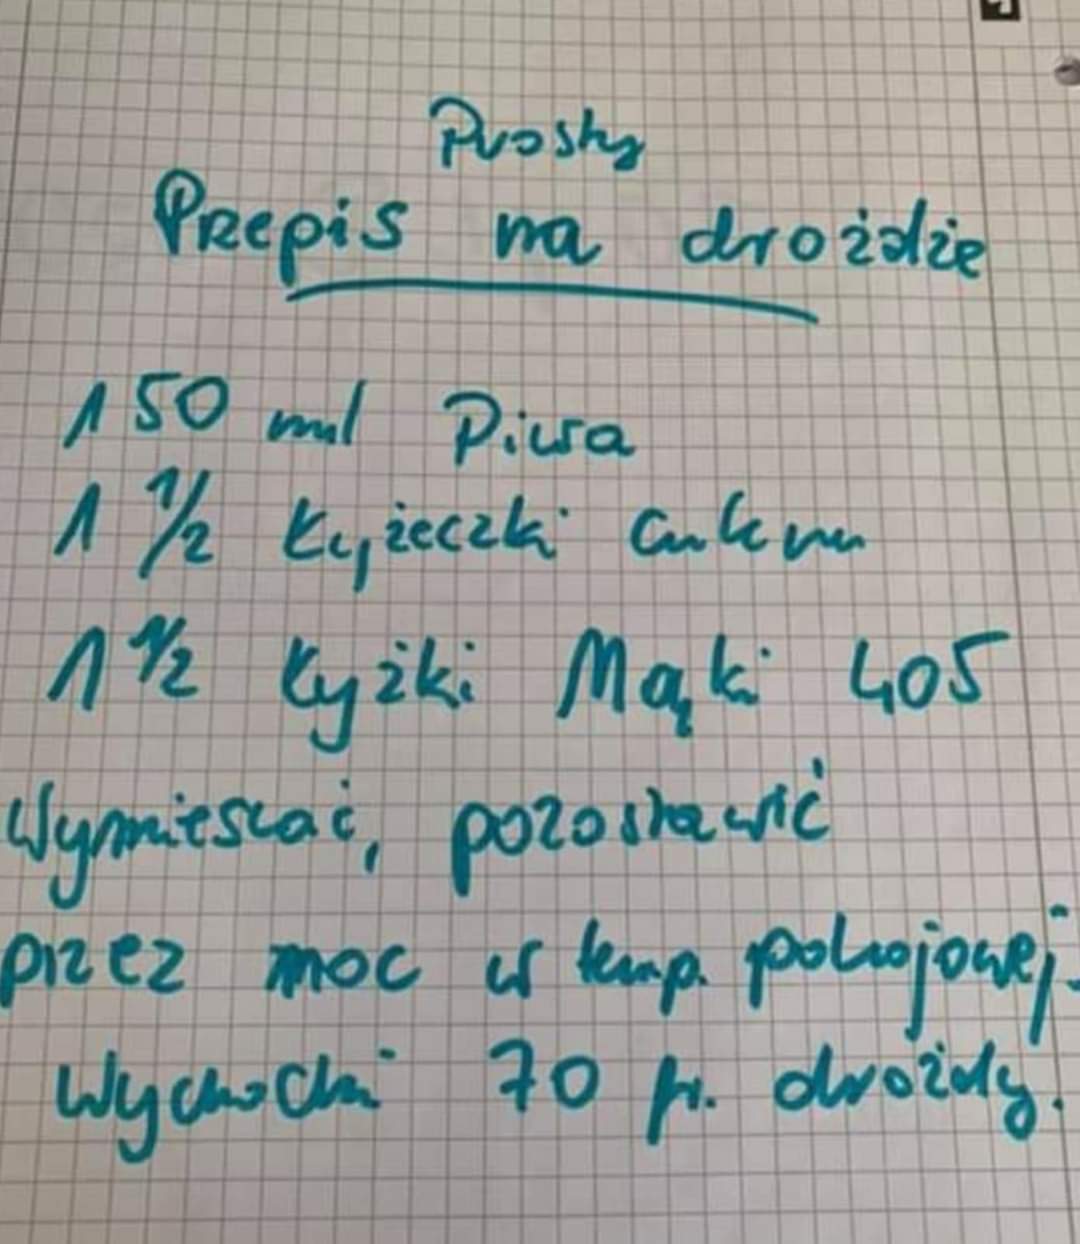 Prosty
Przepis na drożdże
150 ml Piwa
1 1/2 Łyżeczki Cukru
1 1/2 Łyżki Mąki 405
Wymieszać, pozostawić
przez noc w temp. pokojowej.
Wychodzi 70 gr. drożdży.